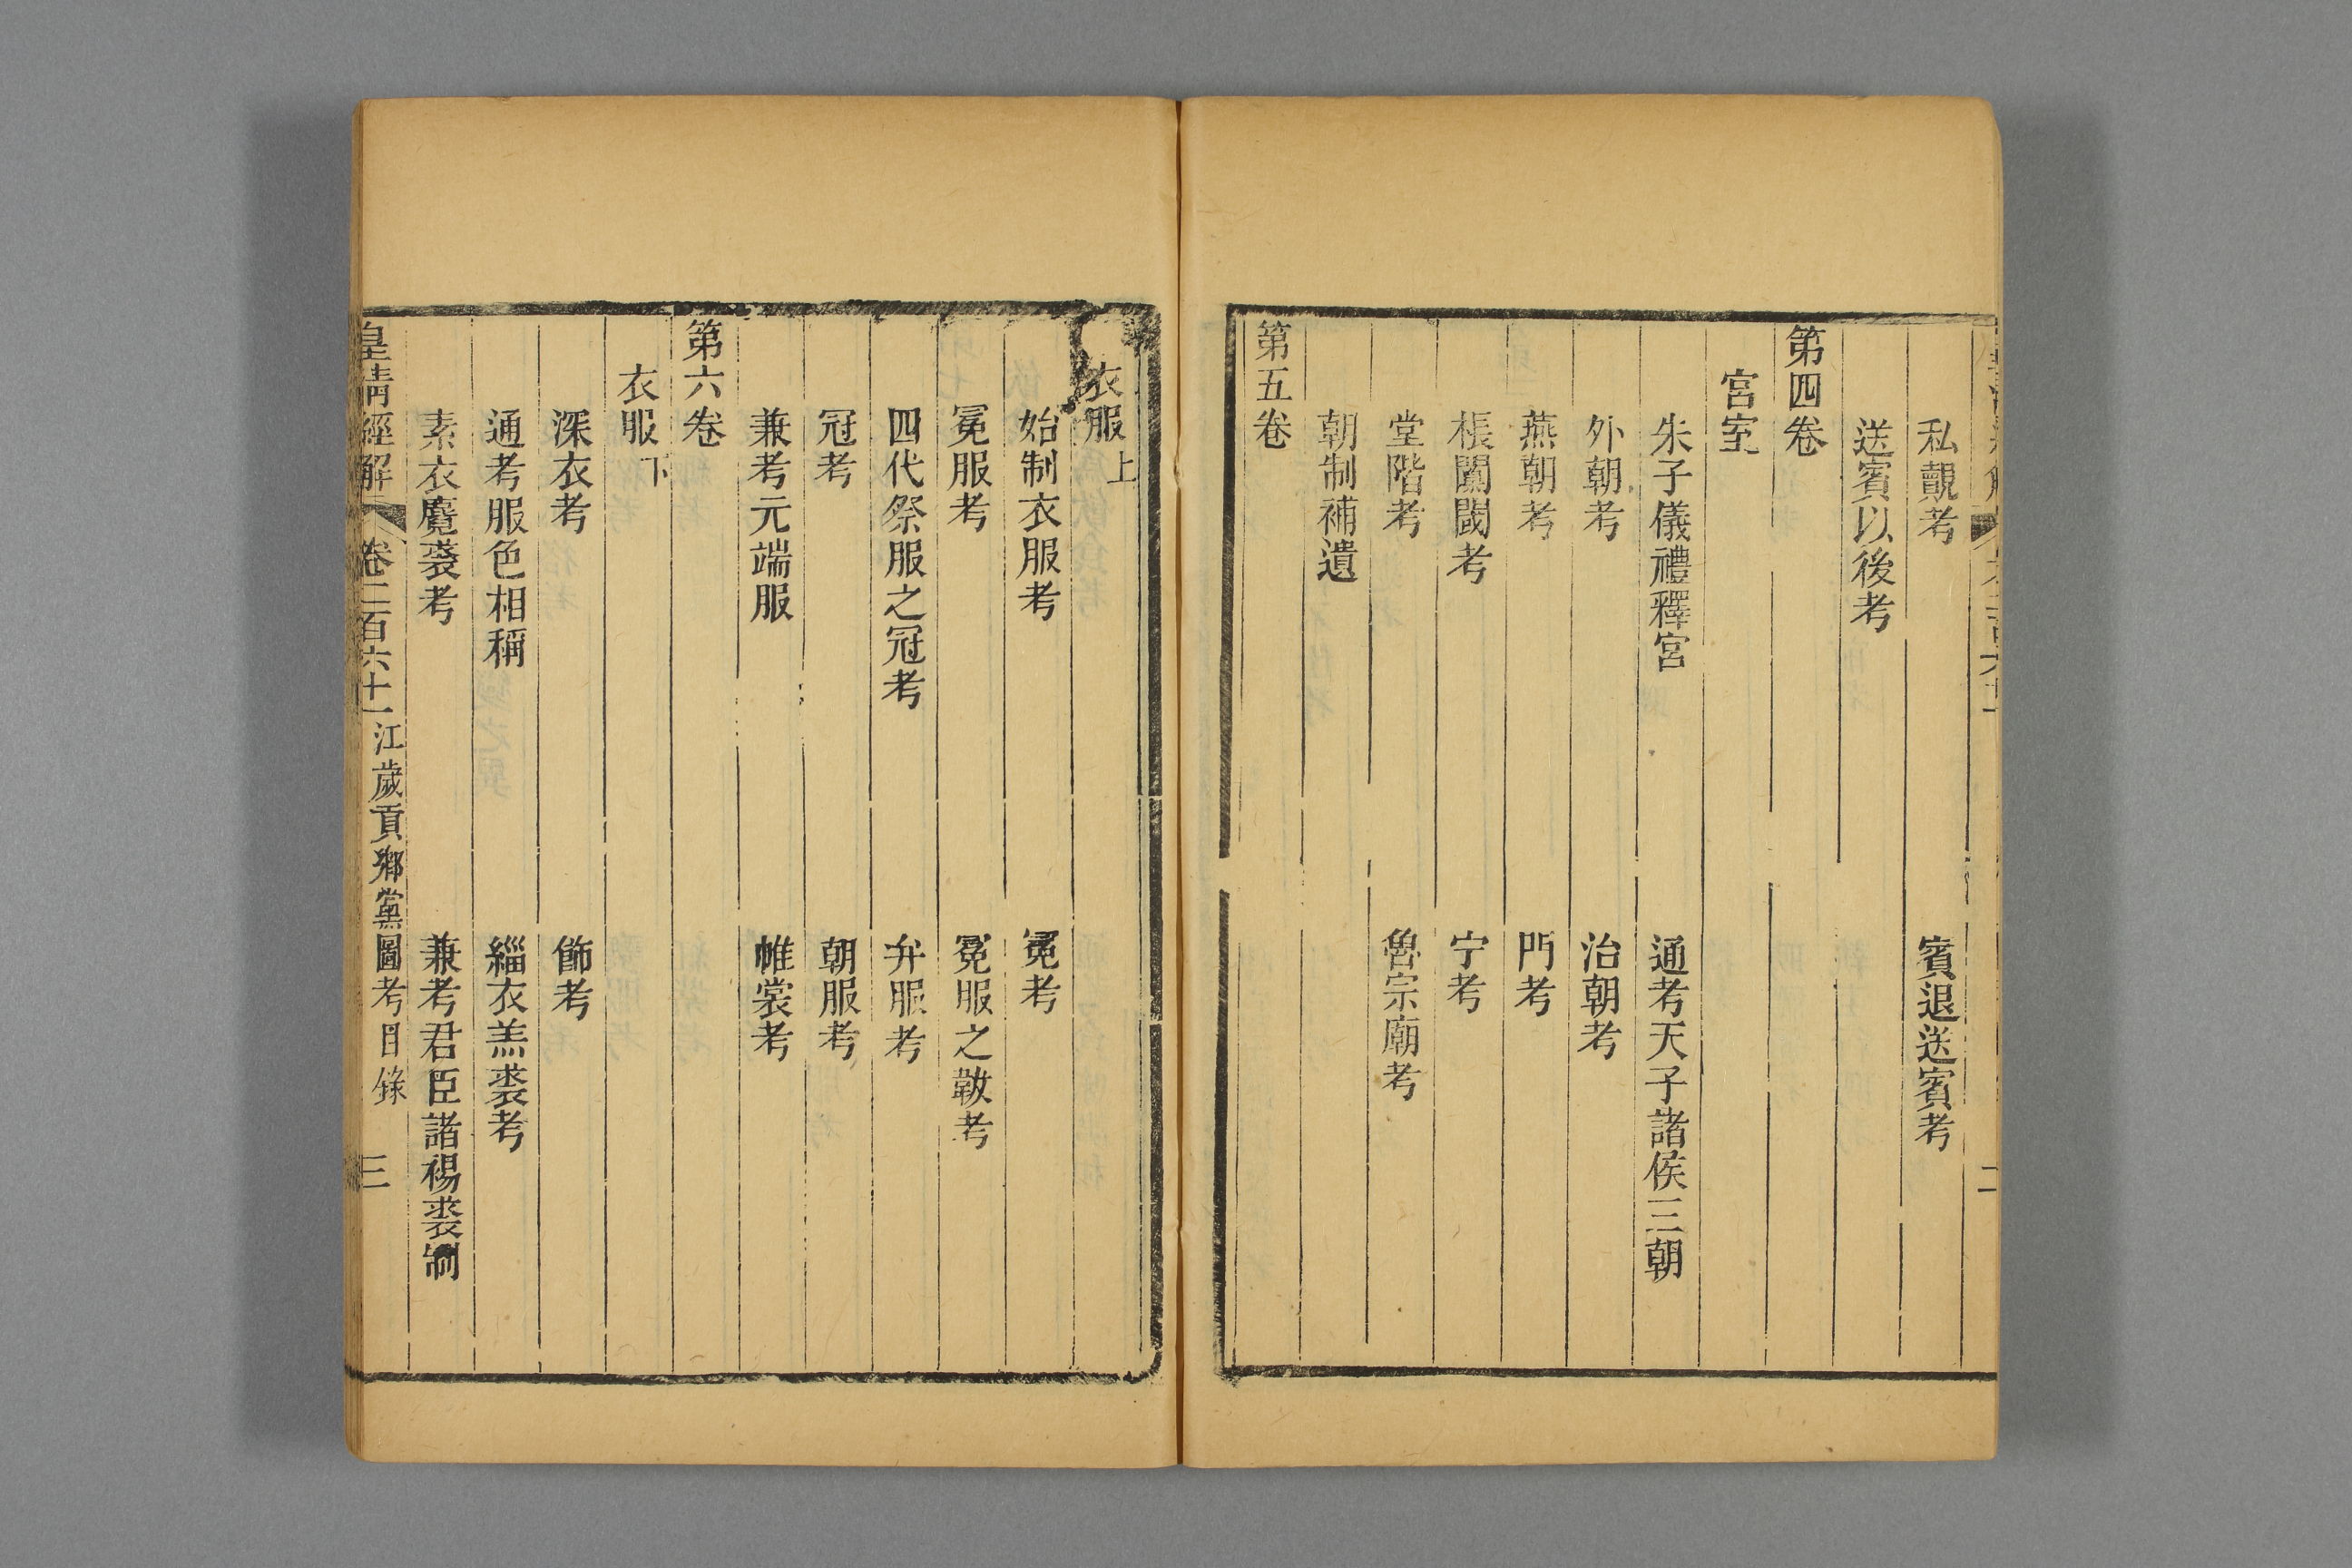 私覿考　賓退送賓考
送賓以後考
第四卷
宮室
朱子儀禮釋宮　通考天子諸侯三朝
外朝考　治朝考
燕朝考　門考
棖闑閾考　宁考
堂階考　魯宗廟考
朝制補遺
第五卷
衣服上
始制衣服考　冕考
冕服考　冕服之韍考
四代祭服之冠考　弁服考
冠考　朝服考
兼考元端服　帷裳考
第六卷
衣服下
深衣考　飾考
通考服色相稱　緇衣羔裘考
素衣麑裘考　兼考君臣諸裼裘制
皇清經解　卷二百六十一　江歲貢鄉黨圖考目錄　三